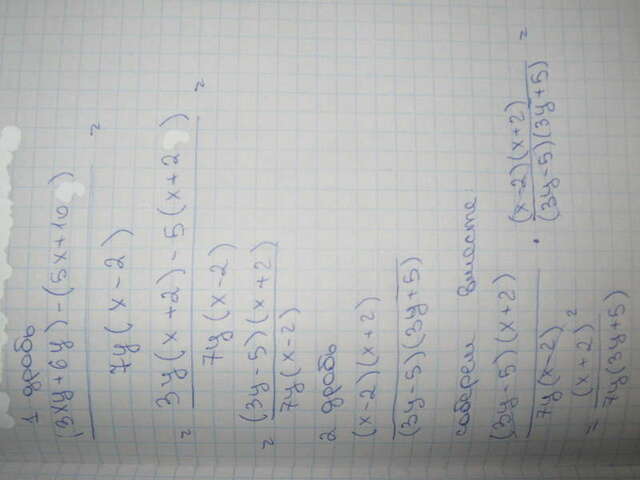 1 дробь
(3xy+6y)-(5x+10) =
7y(x-2)
= 3y(x+2)-5(x+2) =
7y(x-2)
= (3y-5)(x+2)
7y(x-2)
2 дробь
(x-2)(x+2)
(3y-5)(3y+5)
соберем вместе
(3y-5)(x+2) · (x-2)(x+2) =
7y(x-2) (3y-5)(3y+5)
= (x+2)²
7y(3y+5)